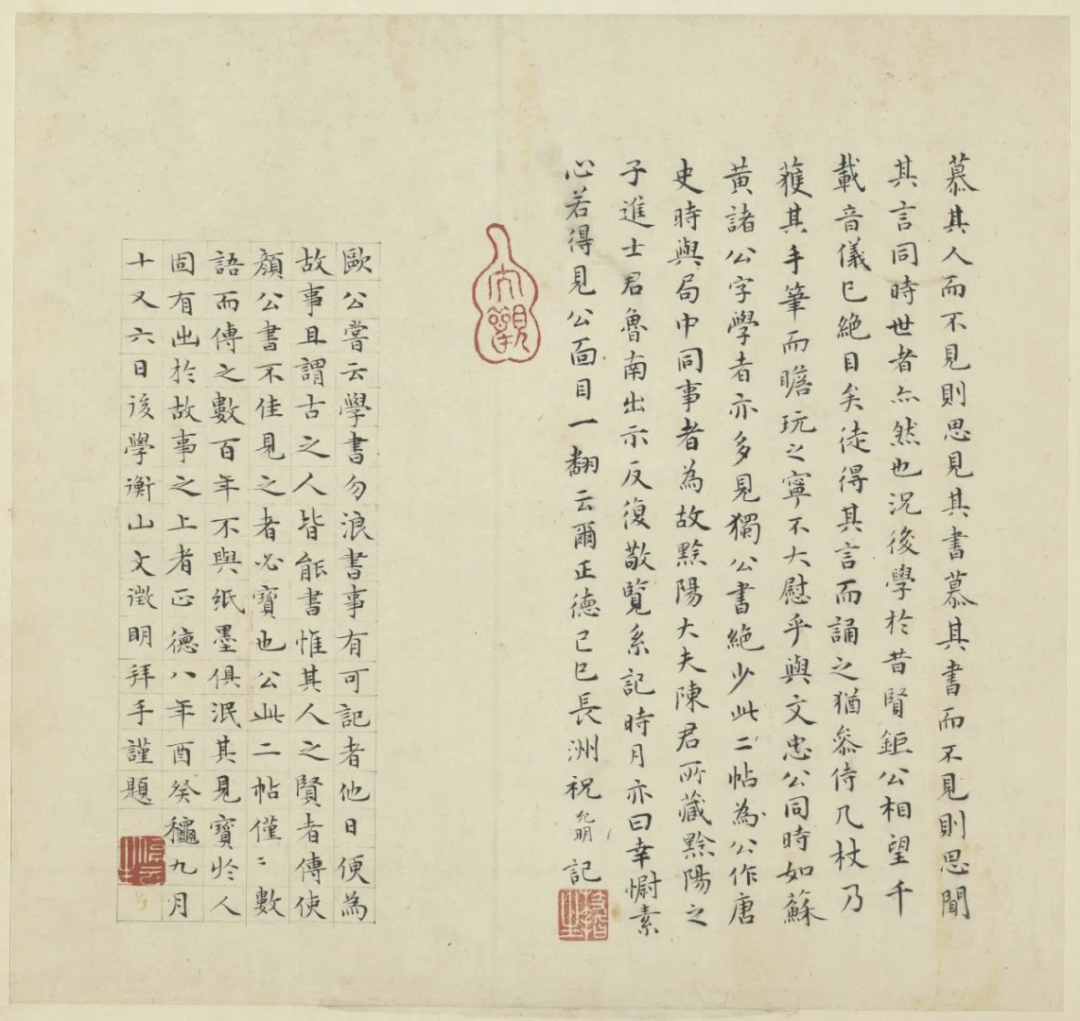 慕其人而不見則思見其書慕其書而不見則思聞
其言同時世者亦然也況後學於昔賢鉅公相望千
載音儀已絶目矣徒得其言而誦之猶叅侍几杖乃
獲其手筆而瞻玩之寧不大慰乎與文忠公同時如蘇
黃諸公字學者亦多見獨公書絶少此二帖為公作唐
史時與局中同事者為故黟陽大夫陳君所藏黟陽之
子進士君魯南出示反復敬覽系記時月亦曰幸慰素
心若得見公面目一翻云爾正德己巳長洲祝允明記
大觀
歐公嘗云學書勿浪書事有可記者他日便為
故事且謂古之人皆能書惟其人之賢者傳使
顏公書不佳見之者必寶也公此二帖僅〻數
語而傳之數百年不與紙墨俱泯其見寶於人
固有出於故事之上者正德八年酉癸龝九月
十又六日後學衡山文徵明拜手謹題